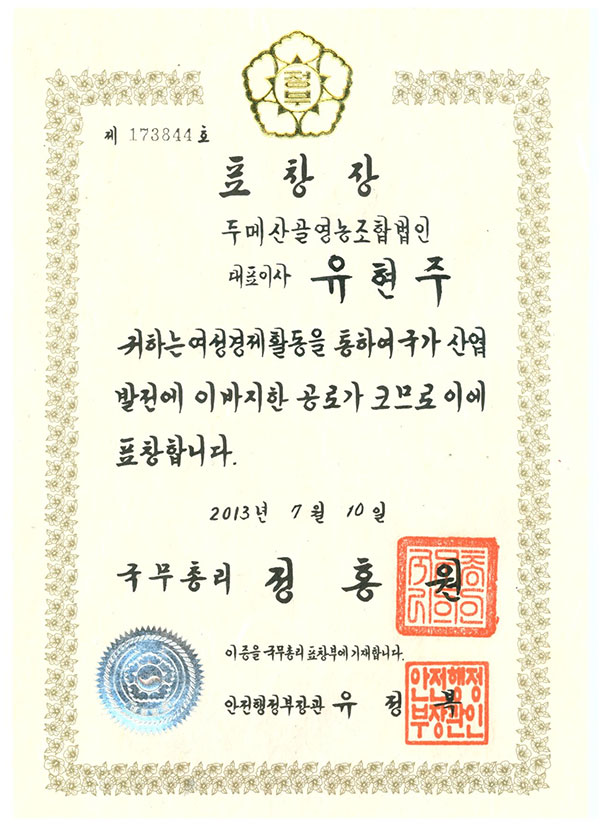 정부
제 173844 호
표창장
두메산골영농조합법인
대표이사 유현주
귀하는 여성경제활동을 통하여 국가 산업
발전에 이바지한 공로가 크므로 이에
표창합니다.
2013년 7월 10일
국무총리 정홍원
이 증을 국무총리 표창부에 기재합니다.
안전행정부장관 유정복
안전행정
부장관인